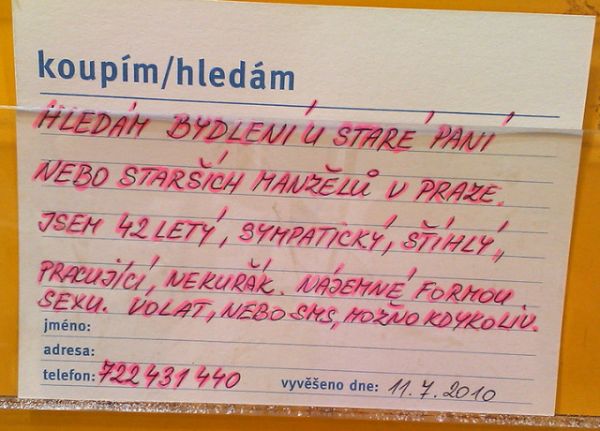 koupím/hledám
HLEDÁM BYDLENÍ U STARÉ PANÍ
NEBO STARŠÍCH MANŽELŮ V PRAZE.
JSEM 42 LETÝ, SYMPATICKÝ, ŠTÍHLÝ,
PRACUJÍCÍ, NEKUŘÁK. NÁJEMNÉ FORMOU
SEXU. VOLAT, NEBO SMS, MOŽNO KDYKOLIV.
jméno:
adresa:
telefon: 722 431 440 vyvěšeno dne: 11.7.2010